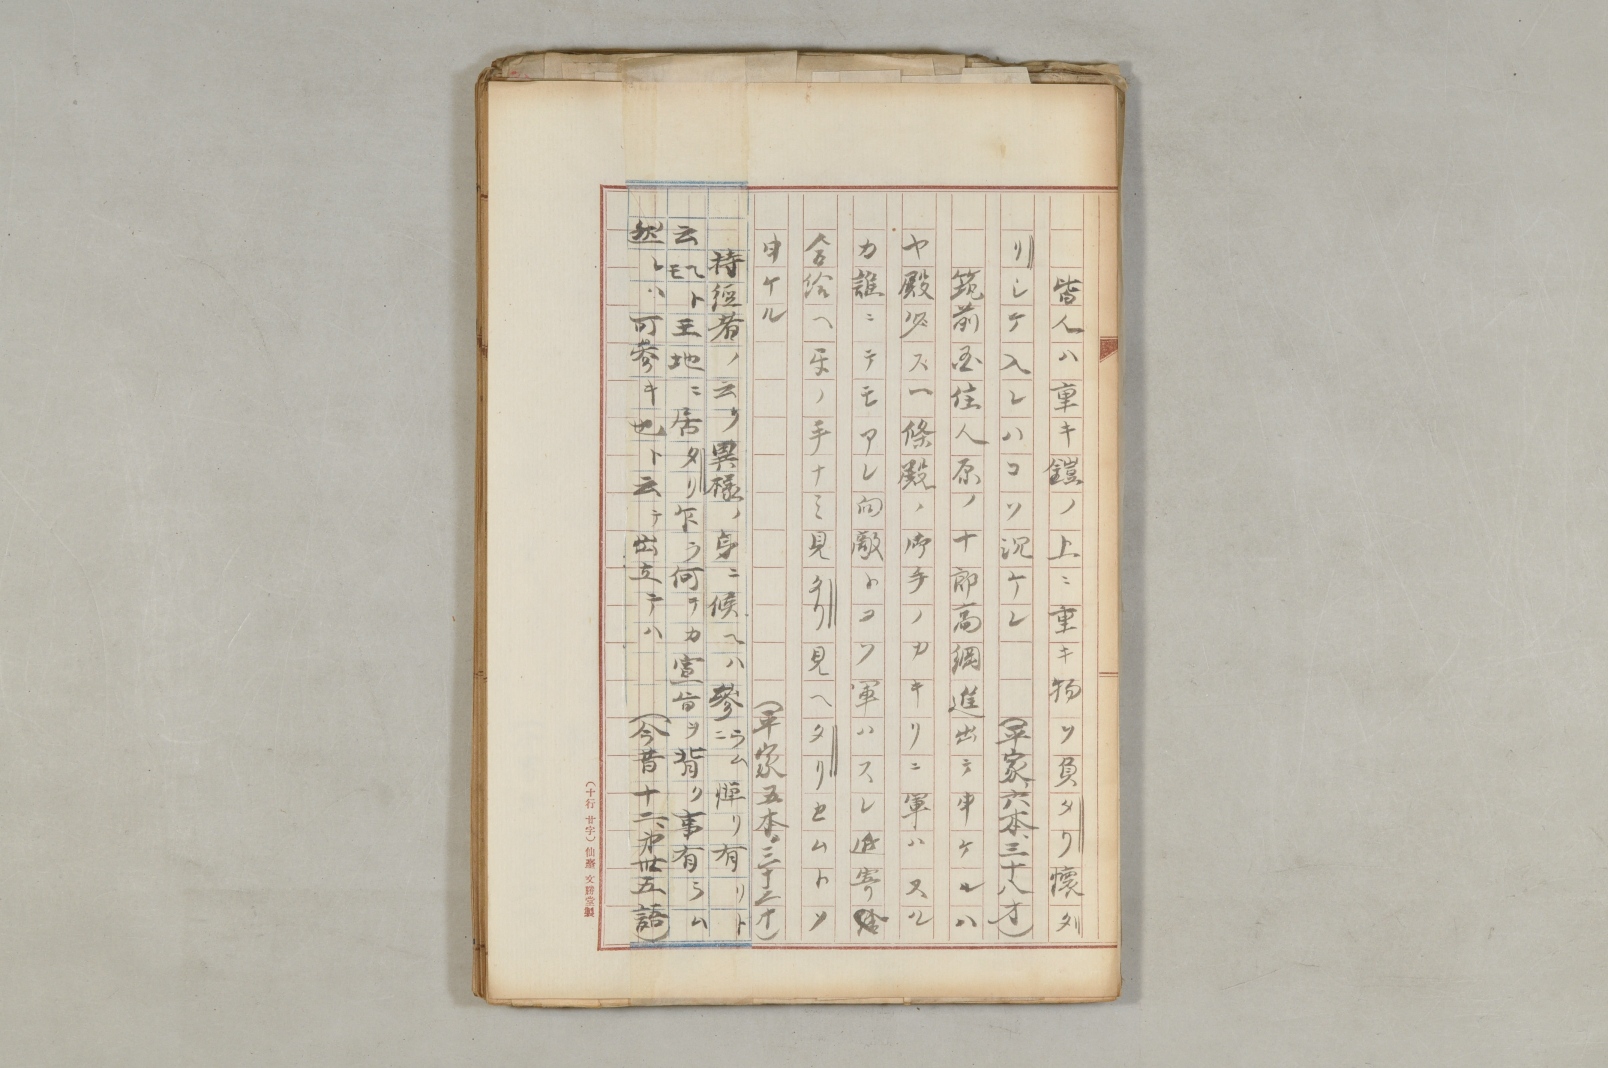 皆人ハ重キ鎧ノ上ニ重キ物ヲ負タリ懐タ
リシテ入レハコソ沉ケレ（平家六本、三十八オ）
筑前国住人原ノ十郎高綱進出テ申ケルハ
ヤ殿少ズ一條殿ノ御手ノカキリニ軍ハスル
カ誰ニテモアレ向敵トコソ軍ハスレ近寄給
合給ヘ手ノ手ナミ見タリ見ヘタリセムトソ
申ケル（平家五本、三十二オ）
持経者ノ云ク異様ノ身ニ候ヘハ参ラムニ憚リ有リト
云ヘトモ王地ニ居タリ乍ラ何テカ宣旨ヲ背ク事有ラム
然レハ可参キ也ト云テ出立テハ（今昔十二、第卅五語）
（十行 廿字）仙臺 文勝堂製